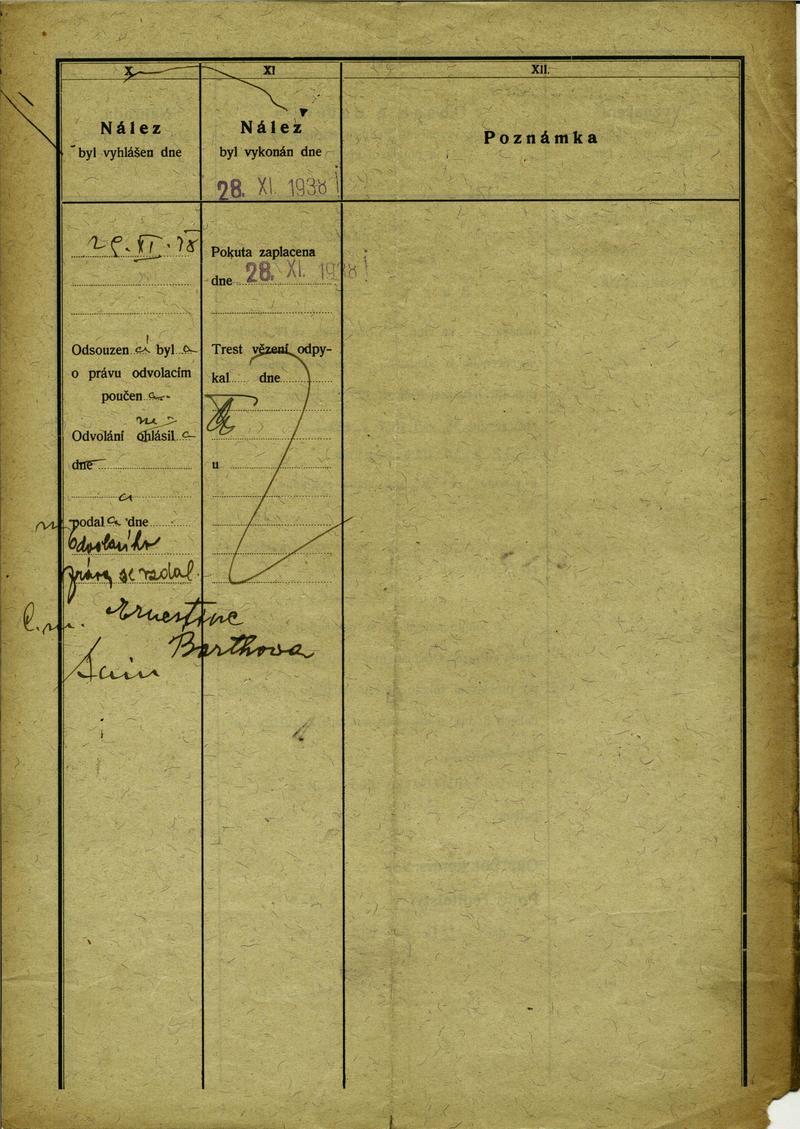 X
Nález
byl vyhlášen dne
XI
Nález
byl vykonán dne
28. XI. 1938
XII.
Poznámka
XI. 38
Odsouzen á byl a
o právu odvolacím
poučen a
Odvolání ohlásil a
dne
a
podal a dne
odvolacího
práva se vzdal
Ernestine
Barthova
Pokuta zaplacena
dne 28. XI. 1938
Trest vězení odpy-
kal dne
u